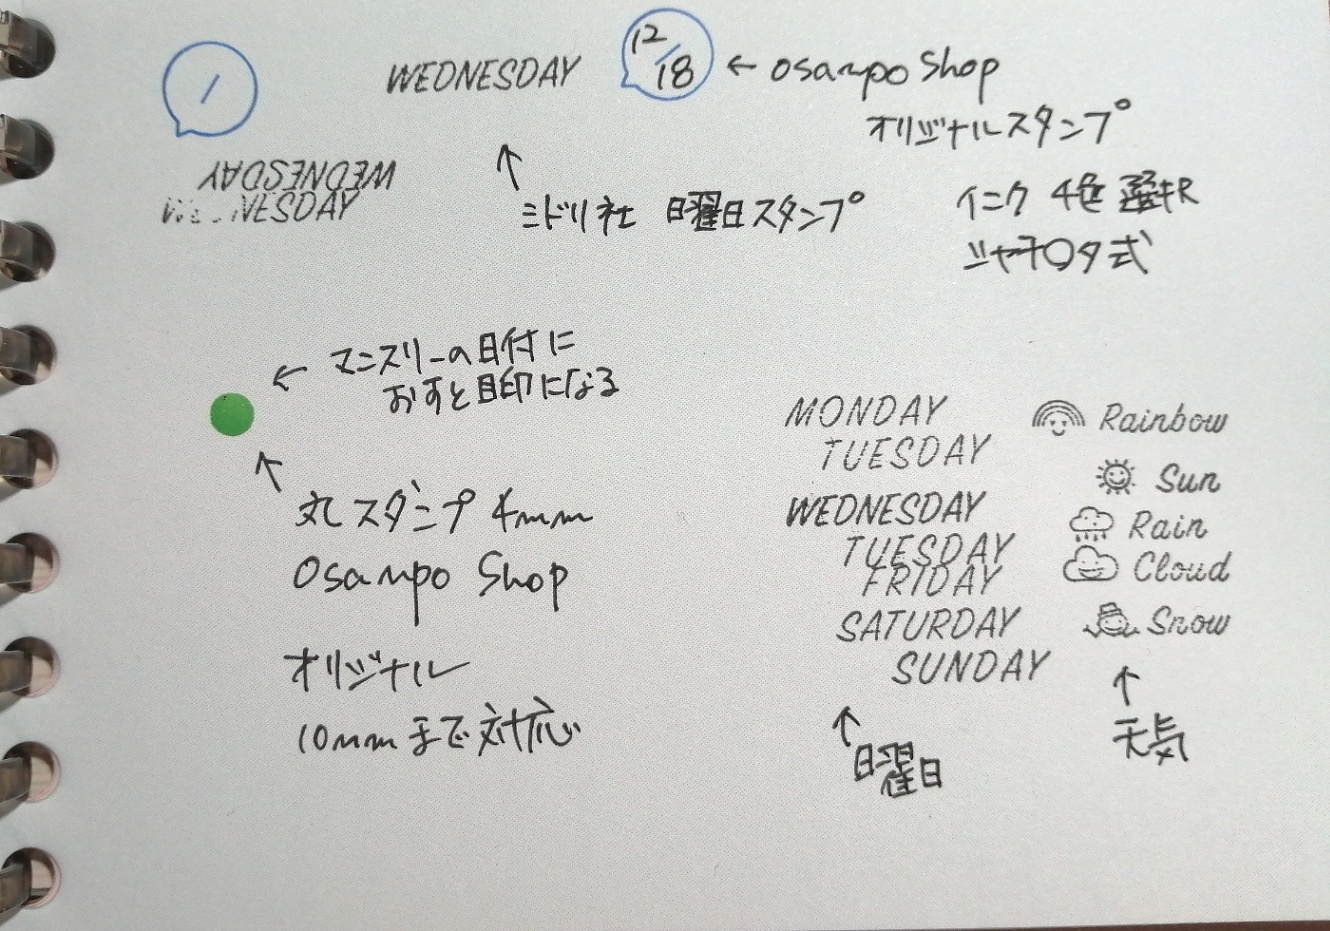 WEDNESDAY
12/18 ← Osampo Shop
オリジナルスタンプ
WEDNESDAY
WEDNESDAY
↑
ミドリ社 日曜日スタンプ
インク 4色 選択
シャチハタ式
← マンスリーの日付に
おすと目印になる
↑
丸スタンプ 4mm
Osampo Shop
オリジナル
10mmまで対応
MONDAY
TUESDAY
WEDNESDAY
TUESDAY
FRIDAY
SATURDAY
SUNDAY
↑
日曜日
Rainbow
Sun
Rain
Cloud
Snow
↑
天気